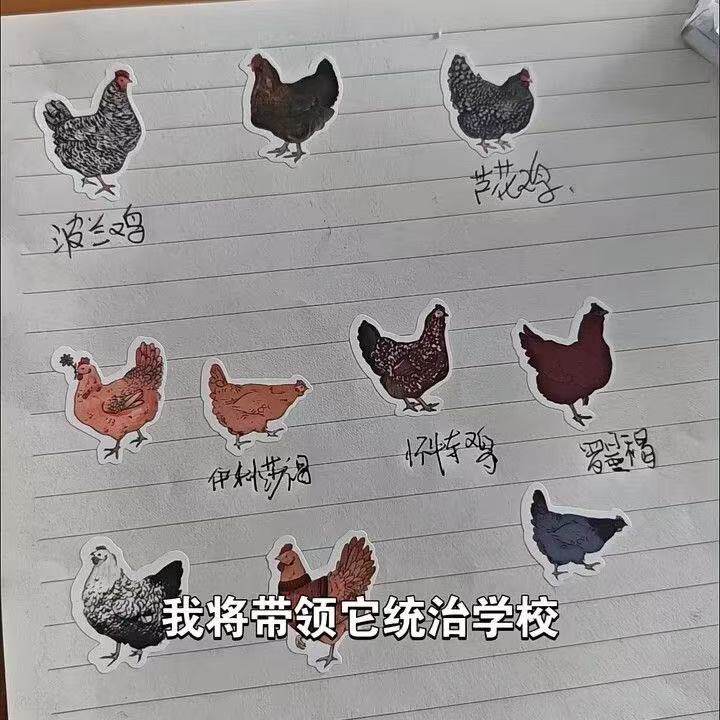 波兰鸡
芦花鸡.
伊利莎褐
怀特鸡
罗曼褐
我将带领它统治学校